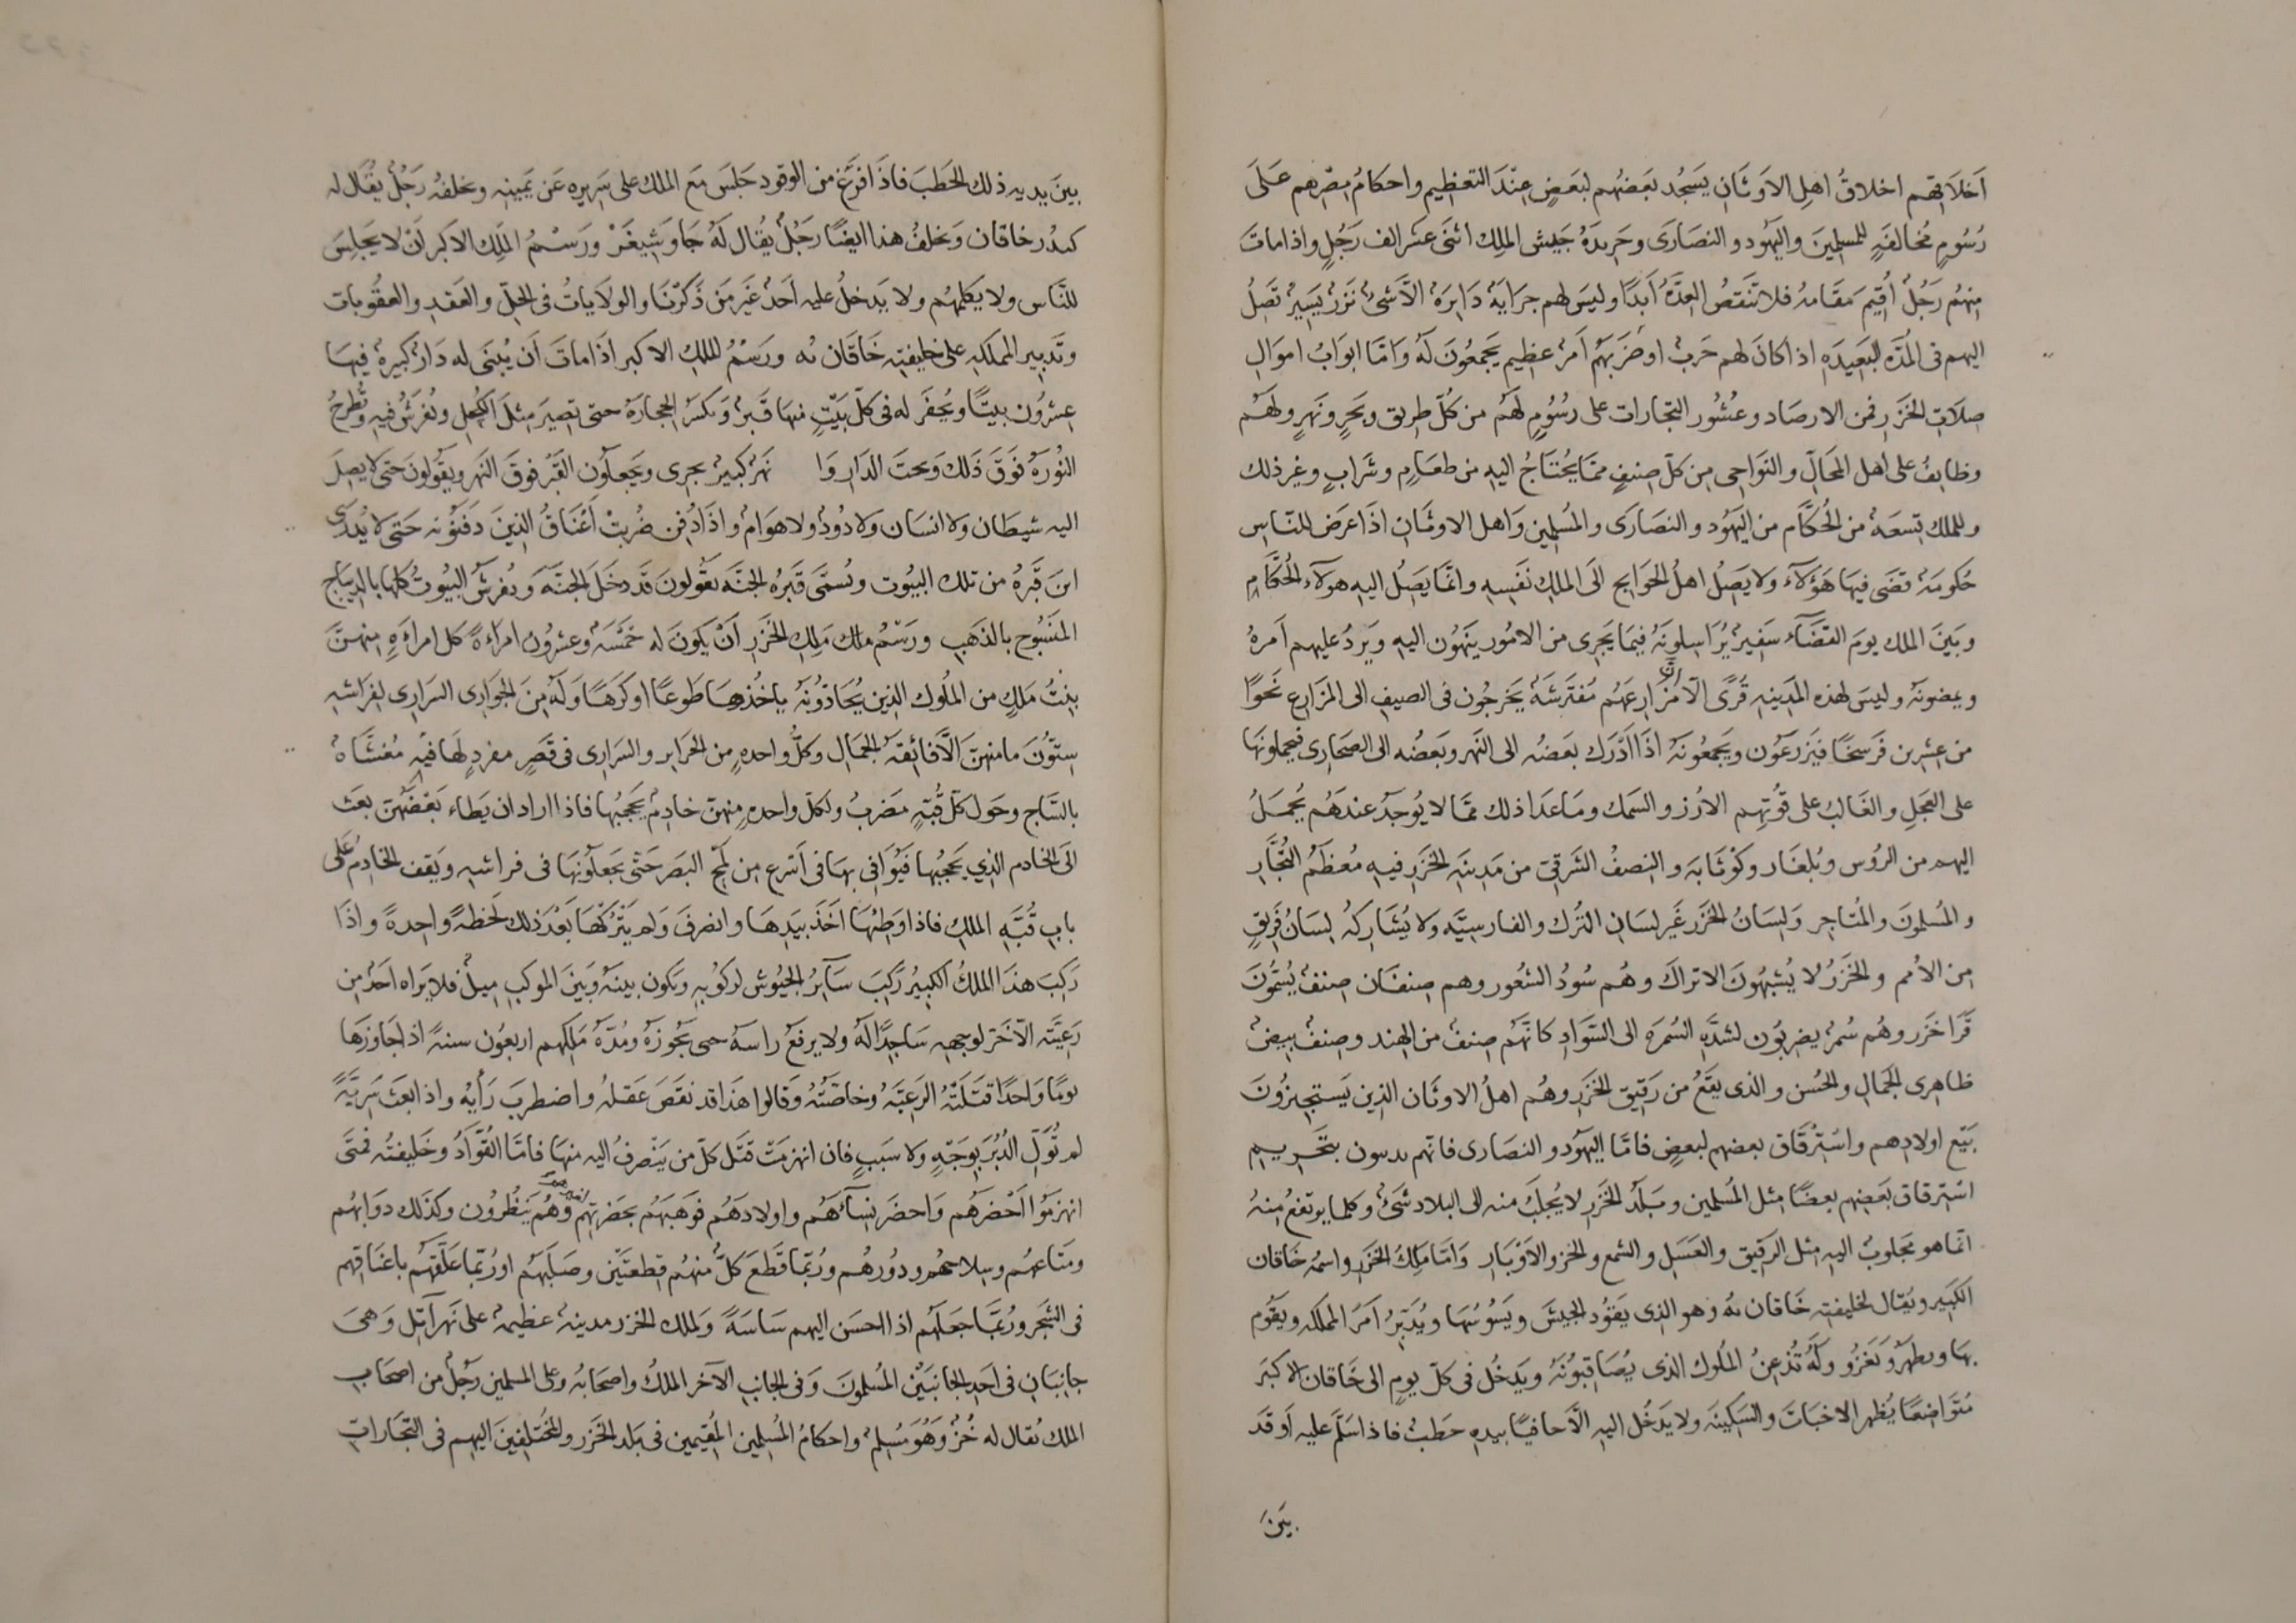 اخلاقهم اخلاقُ اهلِ الاوثانِ يسجُد بعضُهم لبعضٍ عِندَ التعظيم واحكامُ مِصْرهم عَلَى
رُسُومٍ مُخالفَةٍ للمسلمِينَ واليهَود والنصَارَى وجريدَةُ جَيش الملِك اثنَى عشر الف رَجُلٍ واذا ماتَ
مِنهُم رَجُلٌ أُقِيمَ مقَامهُ فلا تَنقصُ العِدَّة أبَدًا وليسَ لهم جرَايَة دَايرَة الّا شئ نَزرٌ يَسِيرٌ تَصِلُ
اليهم فى المُدّه البَعِيدَه اذا كانَ لهم حَربٌ او حَزَبَهُم أمرٌ عظِيم يَجمعُونَ لَهُ وامّا ابوَابُ اموَالِ
صِلَاتِ الخزَرِ فمن الارصَاد وعُشُور التجارات على رسُومٍ لهم من كلّ طريق وبَحرٍ ونَهرٍ ولهَم
وظايفُ على اهل المحَالّ والنوَاحِى مِن كلّ صِنفٍ ممّا يُحتَاجُ اليه من طعَامٍ وشَرابٍ وغير ذلك
وللملك تِسعَة من الحُكَّام من اليَهُود والنصَارَى والمُسلِمين وَاهل الاوثَانِ اذَا عرَض للنّاسِ
حُكومَة قضَى فيهَا هَؤلآء ولا يَصِلُ اهلُ الحَوَايج الَى الملكِ نفسِهِ وانّمَا يَصِلُ اليه هولآء الحُكّامِ
وبَينَ الملك يومَ القضَآء سَفِيرٌ يُرَاسِلونَهُ فيمَا يَجرِى من الامُور يَنهُون اليهِ ويَردُ عليهم أمرهُ
ويمضونَهُ وليسَ لهذه المَدِينه قُرًى الّا ان مَزارعَهُم مُفترشَةٌ يَخرجُون فى الصيفِ الى المزَارِع نَحوًا
من عِشرِين فرسخًا فيَزرَعُون ويَجمعُونَهُ اذَا أدْرَك بعَضهُ الى النَهرِ وبَعضُه الى الصحَارِى فيحملونَهَا
على العجَلِ والغَالب على قُوتِهِم الارُز والسمَك ومَا عدَا ذلك ممّا لا يُوجَدُ عندَهُم يُحمَلُ
اليهم من الرُوس وبُلغَار وكوْثَابَه والنِصفُ الشَرقىّ من مَدِينَهِ الخَزَرِ فيهِ مُعظَمُ التُجَّارِ
والمُسلمونَ والمُتاجِر ولِسَانُ الخزَرِ غَير لسَانِ التُرك والفارسِيَّه ولا يُشَارِكهُ لسَانُ فَرِيقٍ
مِن الاُمم والخَزَرُ لا يُشبِهُونَ الاترَاكَ وهُم سُودُ الشعُور وهم صِنفَان صِنفٌ يُسَمَّونَ
قَراخَزر وهُم سُمرٌ يضرِبُون لشدَّهِ السُمرَه الى السَّوادِ كانَّهُم صِنفٌ من الهِند وصِنفٌ بِيضٌ
ظاهِرى الجَمَالِ والحُسن والذى يقَعُ من رَقيِق الخَزَرِ وهُم اهلُ الاوثَانِ الذين يَستَجيزُونَ
بَيْع اولادهم واسْتِرْقَاق بعضهم لبعضٍ فامّا اليهَود والنصَارى فانّهم يدينون بتَحْريم
اسْترقاق بعَضِهم بعضًا مثل المُسلمين وبَلدُ الخَزَرِ لا يُجلَبُ منه الى البلاد شَئٌ وكلما يرتفعُ مِنهُ
انّما هو مَجلوبٌ اليهِ مِثل الرَقيق والعَسَل والشمع والخز والاَوْبَارِ وَامّا مَلِكُ الخَزَرِ واسمهُ خَاقان
الكبَيِر ويُقال لخليفَتِه خَاقان به وهو الذى يَقوُد الجيشَ ويَسُوسُهَا ويُدَبِّرُ امَر المملكه ويقَوُم
بهَا ويظهَر وَيَغزُو ولَهُ تُذعِنُ المُلُوك الذى يُصَاقِبُونَهُ ويَدخُل فى كلّ يومٍ الى خَاقانِ الاكبَرَ
مُتَواضِعًا يُظهر الاخبَاتَ والسَكِينَه ولا يَدخُل اليه الّا حافيًا بيدهِ حطَبٌ فاذا سَلَّمَ عليه أوقَدَ
بَينَ
بينَ يديه ذلك الحَطبَ فاذَا فرَغَ من الوقود جَلسَ مَع الملك على سَريرِه عَن يَمينِه ويخلفهُ رَجُلٌ يُقال له
كندُر خاقان وَيخلفُ هذا ايضًا رَجُلٌ يُقال لَهُ جَاوشِيغَرْ ورَسْمُ الملِك الاكبر أنْ لا يَجلِسَ
للنَّاس ولا يكلمهُم ولا يَدخلُ عليه أحَدٌ غَير مَن ذَكرْنَا والولَاياتُ فى الحِلّ والعَقدِ والعقُوبات
وتَدبير المملكه على خليفتِه خَاقان به ورَسْمُ المِلكِ الاكبر اذَا ماتَ أن يُبنَى له دَارٌ كبيرهٌ فيهَا
عِشرُون بيتًا ويُحفَر له فى كلّ بَيْتٍ منهَا قَبرٌ وَيكسَر الحِجارَهُ حتى تصيَر مِثلَ الكُحلِ وتُفرَشُ فيهِ وتُطرحُ
النُورَهُ فَوقَ ذَلك وتحتَ الدَارِ وَا نَهْر كبيرٌ يجرِى ويَجعلُون القَبْرَ فوقَ النَهرِ ويَقُولونَ حتى لا يصِلَ
اليه شيطَان ولا انسَان ولا دُودٌ ولا هوَام واذَا دُفِن ضُربتْ أعْنَاقُ الذِينَ دَفنُونه حَتى لا يُدرَى
اينَ قَبرُهُ من تلك البيُوت وتُسمَّى قَبرُه الجنّه يقُولونَ قَد دخَلَ الجنَّه وتُفرشُ البيُوتُ كلهَا بالدِيباج
المنسُوج بالذهَبِ ورَسْمُ مَلِكِ الخَزَرِ أنْ يكونَ له خَمْسَهٌ وعِشرُون امرَاهً كل امرَاهٍ مِنهنَّ
بِنتُ مَلكٍ من المُلوك الذين يُحَاذُونَهُ ياخُذهَا طَوعًا او كَرهًا وَلَهُ مِنَ الجوَارِى السرَارِى لفِرَاشِه
سِتّونَ ما منهنّ الّا فائِقهُ الجمَال وكلُّ واحدهٍ من الحرَايِر والسرَارِى فى قَصْرٍ مفردٍ لهَا فيهِ قُبة مُغشَّاهٌ
بالسَّاج وحَولَ كلّ قُبّهٍ مَضرَبٌ ولكلّ واحدهٍ مِنهنّ خادِمٌ يَحجبُهَا فاذا ارادَ ان يَطاء بَعْضَهُنّ بعَث
الَى الخادم الذِي يَحجُبهَا فيُوَافى بهَا فى أسْرع مِن لَمْحِ البصَر حَتّى يَجعلُونهَا فى فراشِهِ ويَقف الخادِمُ عَلَى
بابِ قُبّهِ الملِكِ فاذا وَطِئهَا أخَذَ بيَدِهَا وانصَرفَ وَلم يَتْرُكهَا بَعْدَ ذلك لَحظهً واحِدةً واذَا
رَكبَ هذا الملكُ الكبيُر رَكبَ سَآيرُ الجيُوش لركوُبِه ويكون بينَهُ وبَينَ الموكبِ ميلٌ فلا يَراه احَدٌ من
رَعيَّته الّا خَرّ لوجهِهِ سَاجِدًا لَهُ ولا يرفعُ راسَهُ حتى يَجُوزَهُ ومُدّهُ مَلِكهم اربعُون سنهً اذا جَاوزَهَا
يومًا وَاحدًا قتَلَتْهُ الرَعيَّهُ وخاصّتُهُ وَقالوا هذَا قد نقَصَ عقلهُ واضطربَ رَأيُه واذا بعَث سَرِيَّهً
لم تُوَلِّ الدُبُرَ بوَجْهٍ ولا سَببٍ فان انهزمَتْ قتَل كلّ من يَنْصرفُ اليه منهَا فامّا القُوّادُ وخَليفتُه فمتَى
انهزمُوا أحْضرهُم وَاحضرَ نِسآءهُم واولادهُم فوَهبَهُم بحَضرتِهِم لغيرهم وهُم يَنْظُرُون وكذلك دوَابُّهُم
ومتَاعهُم وسِلاحهُم ودُورُهُم ورُبّما قَطعَ كلّ منهُم قِطعتَيْن وصَلبَهُم اورُبّما علَّقَهُم باعْنَاقِهم
فى الشجَرِ ورُبَّمَا جَعلهُم اذا احسَن اليهم سَاسَهً ولملك الخزر مدينهٌ عظيمهٌ على نَهرِ آتِل وَهىَ
جانبَانِ فى أحَدِ الجَانبَيْنِ المُسلمونَ وَفى الجانبِ الآخر الملكُ واصحَابُهُ وعلى المسلمين رَجُلٌ من اصحَابِ
الملك يُقال له خُزٌ وَهُوَ مُسْلِم واحكامُ المُسلِمين المُقيمين فى بَلدِ الخَزَرِ والمُختلِفينَ اليهم فى التجَاراتِ